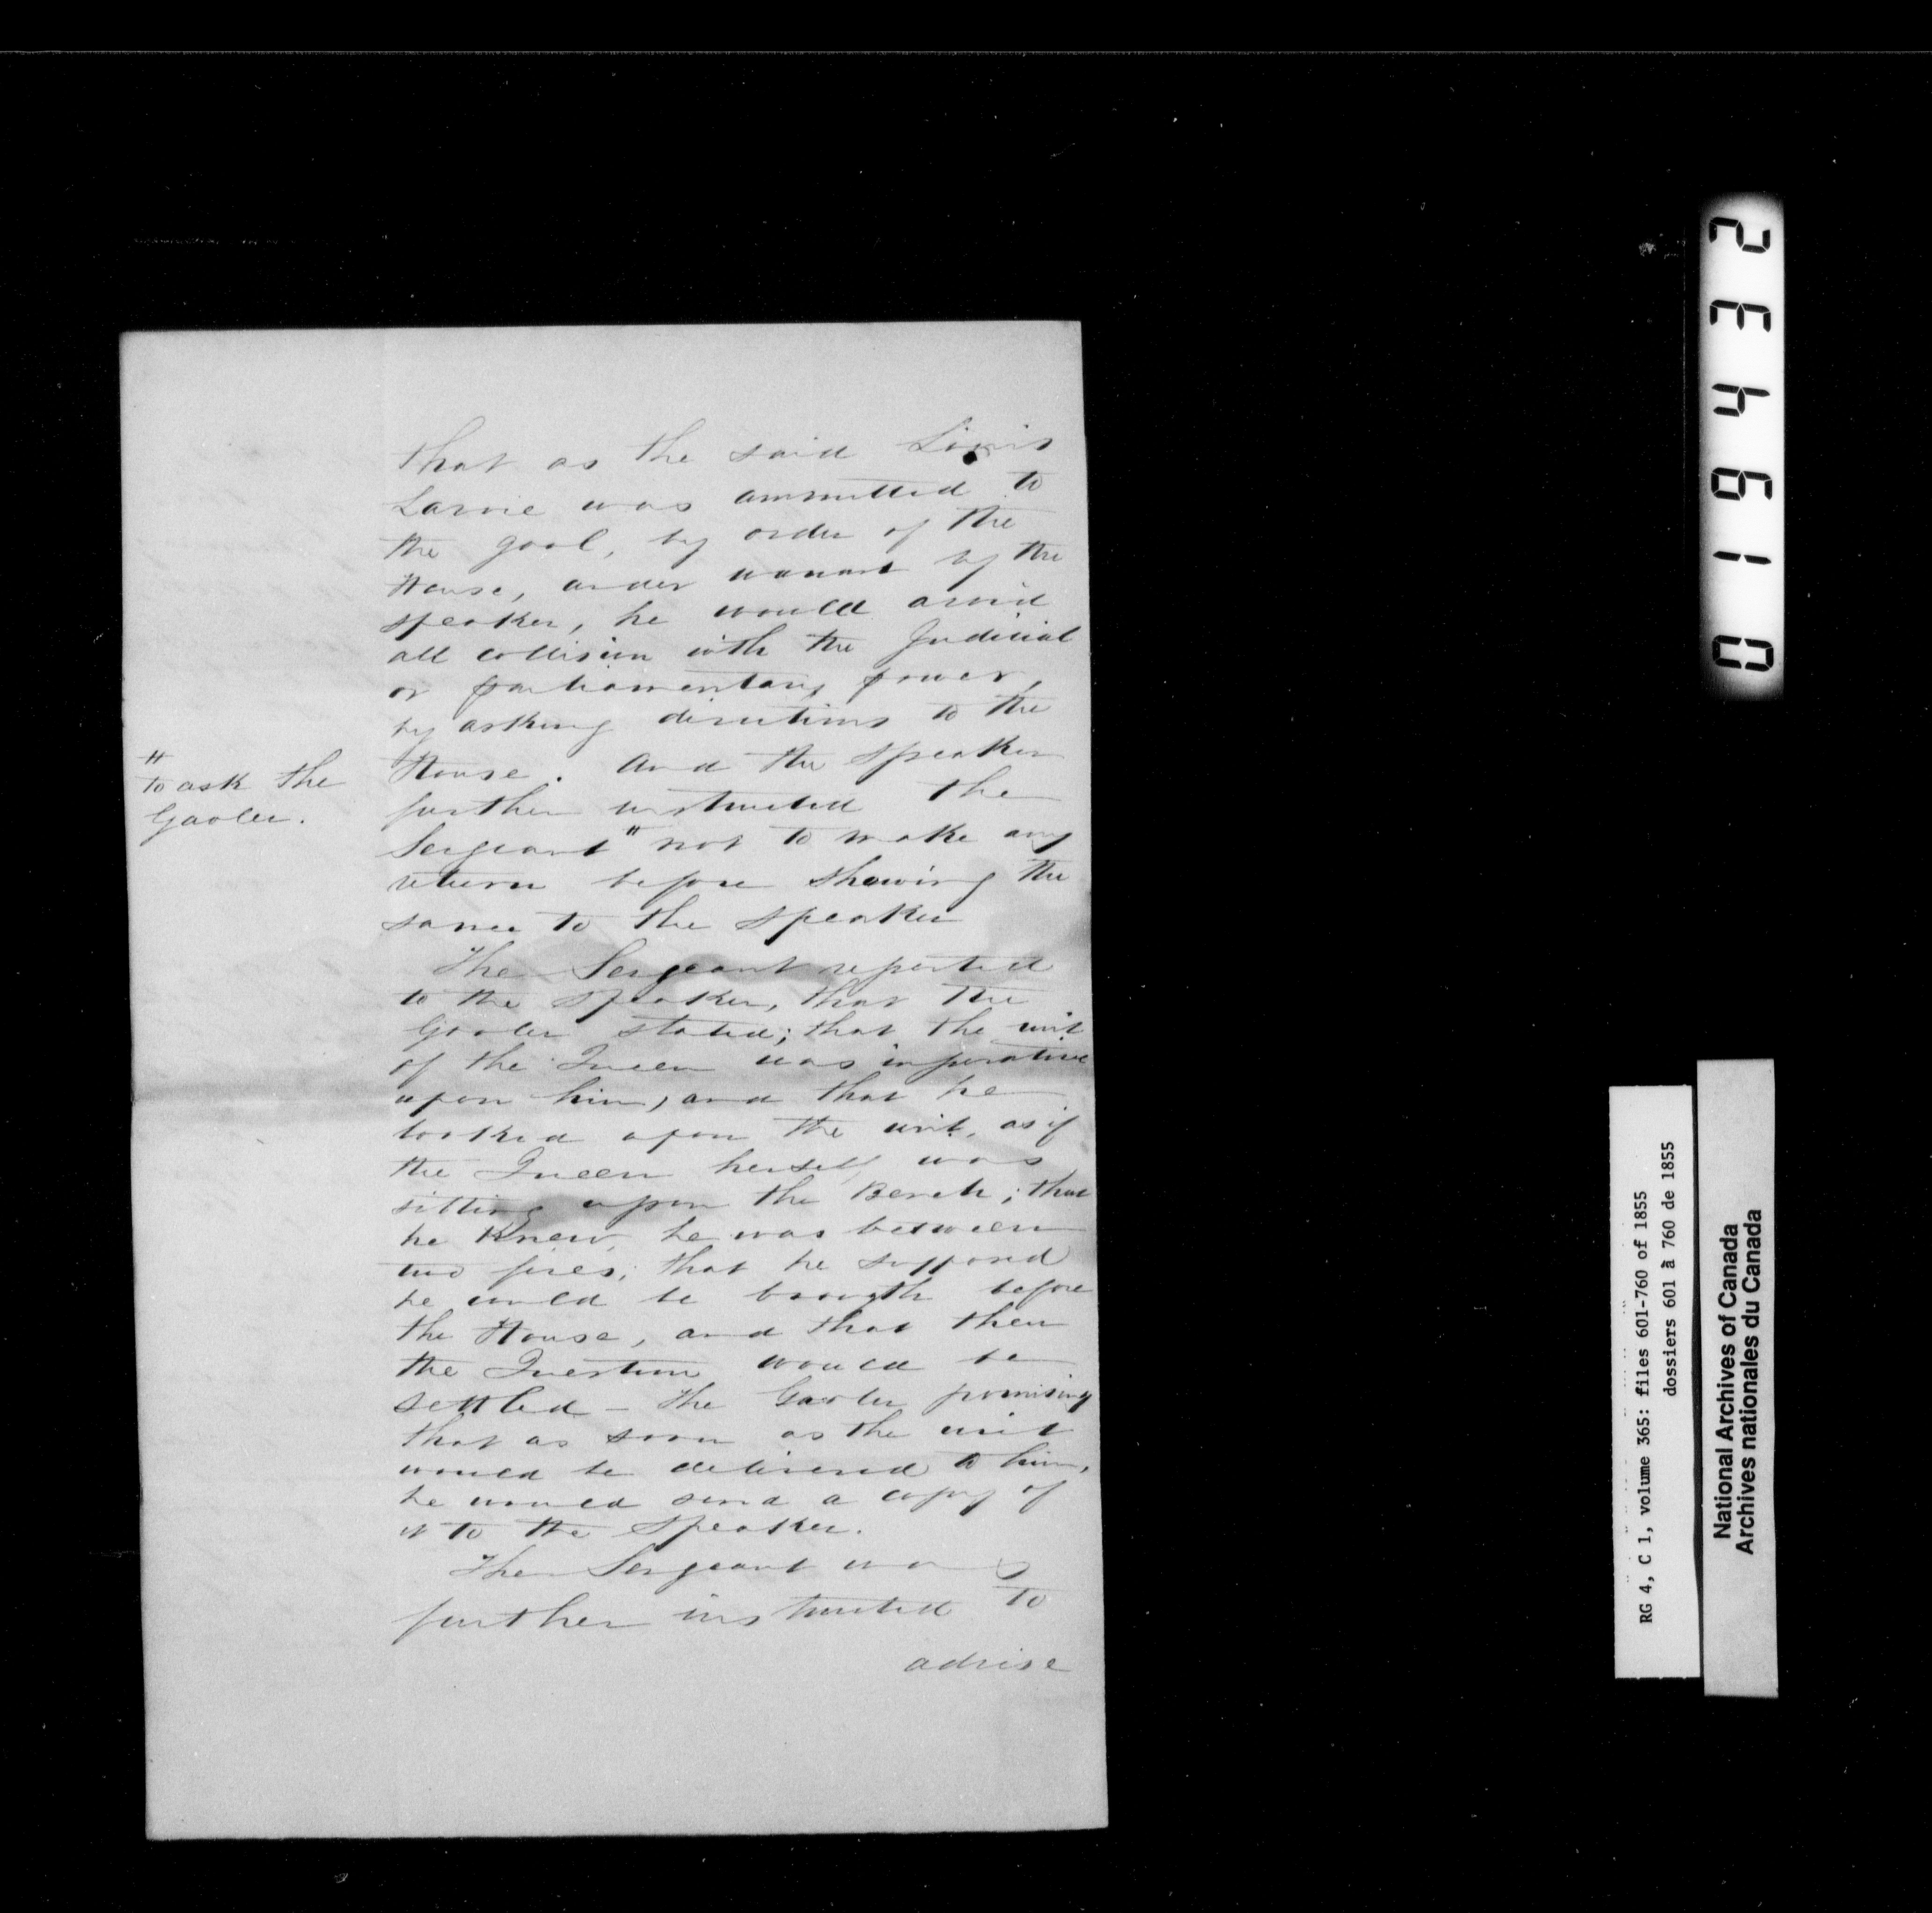 that as the said Louis
Lavoie was ammitted to
the gaol, by order of the
House, under warrant of the
speaker, he would avoid
all collision with the Judicial
or parliamentary power,
by asking directions to the
House. And the Speaker
further instructed the
Sergeant " not to make any
return before showing the
same to the Speaker
"
to ask the
Gaoler.
The Sergeant reported
to the Speaker, that the
Gaoler stated; that the writ
of the Queen was imperative
upon him, and that he
looked upon the writ, as if
the Queen herself was
sitting upon the Bench; that
he knew he was between
two fires; that he supposed
he would be brougth before
the House, and that then
the Question would be
settled - The Gaoler promising
that as soon as the writ
would be delivered to him,
he would send a copy of
it to the Speaker.
The Sergeant was
further instructed to
advise
016432
RG 4, C 1, volume 365: files 601-760 of 1855
dossiers 601 à 760 de 1855
National Archives of Canada
Archives nationales du Canada